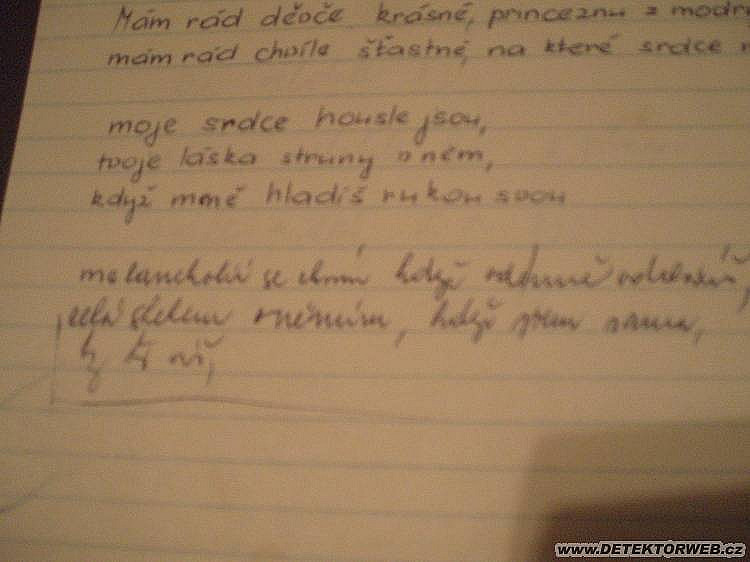 Mám rád děvče krásné, princeznu z modr
mám rád chvíle šťastné, na které srdce
moje srdce housle jsou,
tvoje láska struny v něm,
když mně hladíš rukou svou
když
celá, když jsem sama,
ty to víš,
www.DETEKTORWEB.cz